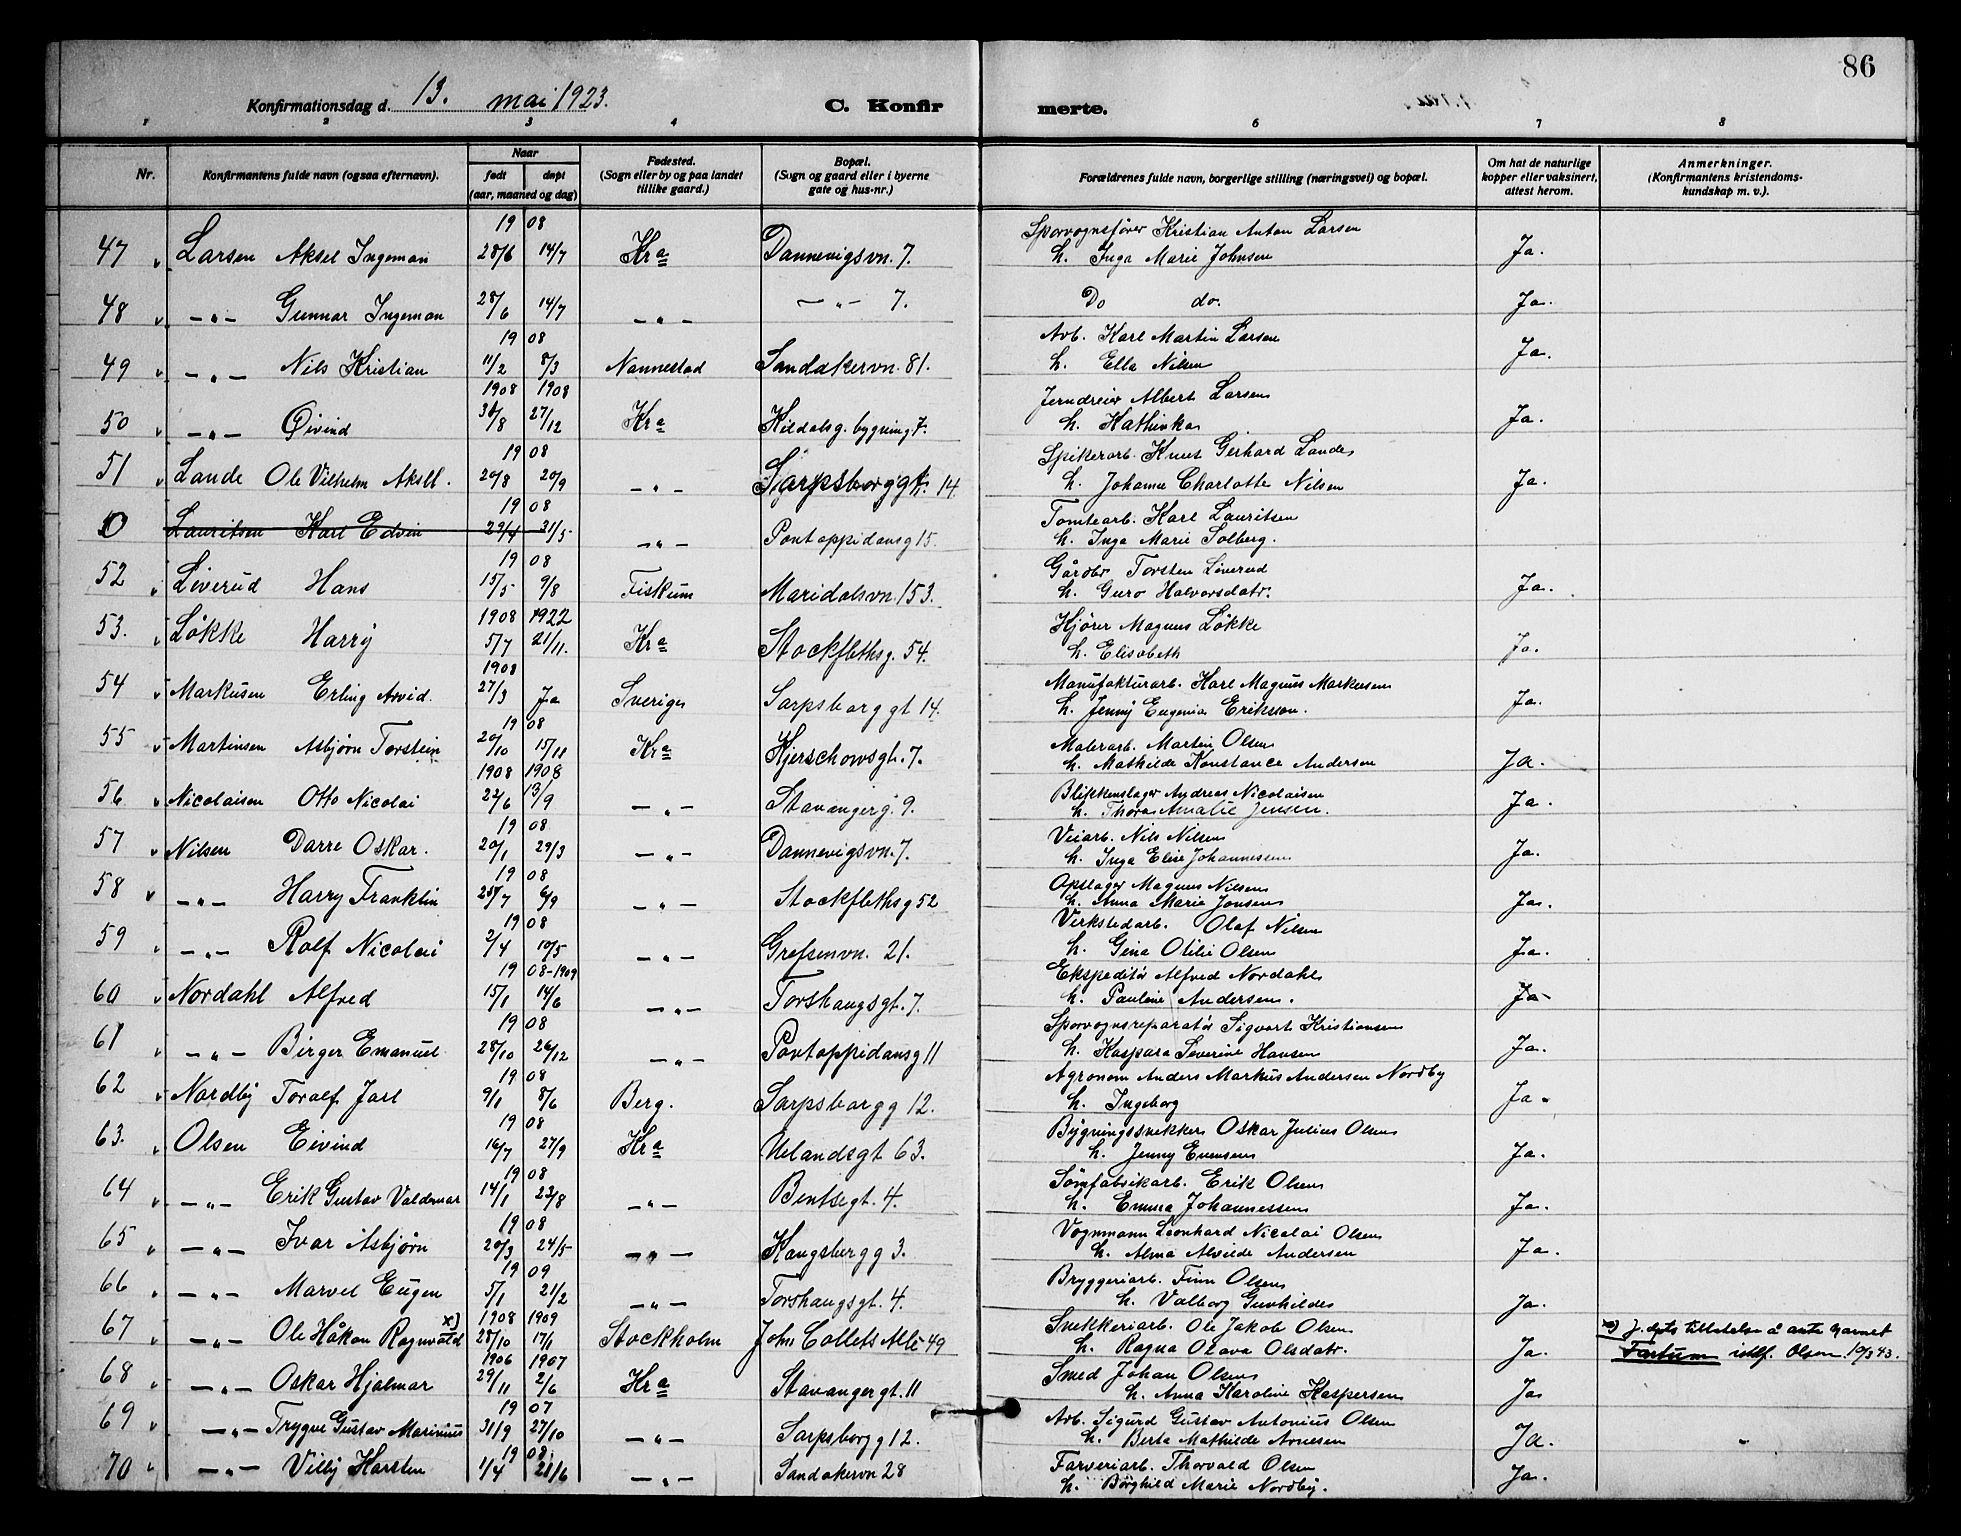 86
Konfirmationsdag d. 13. mai 1923. C. Konfirmerte.
1 2 3 4 6 7 8
Nr. Konfirmantens fulde navn (ogsaa efternavn). Naar født døpt (aar, maaned og dag) Fødested. (Sogn eller by og paa landet tillike gaard.) Bopæl. (Sogn og gaard eller i byerne gate og hus-nr.) Forældrenes fulde navn, borgerlige stilling (næringsvei) og bopæl. Om hat de naturlige kopper eller vaksinert, attest herom. Anmerkninger. (Konfirmantens kristendomskundskap m. v.).
19 08 Sporvognsfører Kristian Anton Larsen
47 Larsen Aksel Ingeman 28/6 14/7 Kra Dannevigsvn. 7. h. Inga Marie Johnsen Ja.
48 -"- Gunnar Ingeman 28/6 14/7 -"- -"- 7. Do do. Ja.
19 08 Arb. Karl Martin Larsen
49 -"- Nils Kristian 11/2 8/3 Nannestad Sandakervn. 81. h. Ella Nilsen Ja.
1908 1908 Jerndreier Albert Larsen
50 -"- Øivind 27/12 Kra Hildalsg. bygning 7. h. Kathinka Ja.
19 08 Spikerarb. Knut Gerhard Lande
51 Lande Ole Vilhelm Aksel. 20/8 20/9 -"- Sarpsborggt. 14. h. Johanne Charlotte Nilsen Ja.
19 08 Tomtearb. Karl Lauritsen
0 Lauritsen Karl Edvin 29/4 31/5 -"- Pontoppidansg 15. h. Inga Marie Solberg.
19 08 Gårdbr. Torsten Liverud
52 Liverud Hans 15/5 9/8 Fiskum Maridalsvn. 153. h. Guro Halvorsdatr. Ja.
1908 1922 Kjører Magnus Løkke
53. Løkke Harry 5/7 21/11. Kra Stockflethsg. 54. h. Elisabeth Ja.
1908 Manufakturarb. Karl Magnus Markusen
54 Markusen Erling Arvid. 27/3 Ja Sverige Sarpsborggt 14. h. Jenny Eugenia Eriksson. Ja.
19 08 Malerarb. Martin Olsen
55 Martinsen Asbjørn Torstein 20/10 15/11 Kra Kjerschowsgt. 7. h. Mathilde Konstance Andersen Ja.
1908 1908 Blikkenslager Andreas Nicolaisen
56. Nicolaisen Otto Nicolai 22/6 13/9 -"- Stavangerg. 9. h. Thora Amalie Jensen. Ja.
19 08 Veiarb. Nils Nilsen
57 Nilsen Darre Oskar. 20/1 29/3 -"- Dannevigsvn. 7. h. Inga Elise Johannessen Ja.
19 08 Opslager Magnus Nilsen
58 -"- Harry Franklin 25/7 6/9 -"- Stockflethsg 52 h. Anna Marie Jonsen Ja.
19 08 Verkstedarb. Olaf Nilsen
59 -"- Rolf Nicolai 2/4 10/5 -"- Grefsenvn. 21. h. Gina Otilie Olsen Ja.
19 08-1909 Ekspeditør Alfred Nordahl
60 Nordahl Alfred 15/1 14/6 -"- Torshaugsgt. 7. h. Pauline Andersen. Ja
19 08 Sporvognsreparatør Sigvart Kristiansen
61 -"- Birger Emanuel 28/10 26/12 -"- Pontoppidansg 11 h. Kaspara Severine Hansen Ja.
19 08 Agronom Anders Markus Andersen Nordby
62 Nordby Toralf Jarl 9/1 8/6 Berg. Sarpsborgg 12. h. Ingeborg Ja.
19 08 Bygningssnekker Oskar Julius Olsen
63. Olsen Eivind 16/7 27/9 Kra Uelandsgt 63. h. Jenny Evensen Ja.
19 08 Sømfabrikarb. Erik Olsen
64 -"- Erik Gustav Valdemar 14/1 23/8 -"- Bentsegt. 4. h. Emma Johannessen Ja.
19 08 Vognmann Leonhard Nicolai Olsen
65 -"- Ivar Asbjørn 20/3 24/5 -"- Kongsbergg 3. h. Alma Alvilde Andersen Ja.
19 09 Bryggeriarb. Finn Olsen
66 -"- Marvel Eugen 5/1 21/2 -"- Torshaugsgt. 4. h. Valborg Gunhilde Ja.
x) 1908 1909 Snekkeriarb. Ole Jakob Olsen x) J. dpts tillatelse å anta navnet
67 -"- Ole Håkon Ragnvald 28/10 17/1 Stockholm Johs Collets Alle 49 h. Ragna Olava Olsdatr. Ja. Fartum istf. Olsen. 10/3 43.
1906 1907 Smed Johan Olsen
68 -"- Oskar Hjalmar 29/11 2/6 Kra Stavangergt. 11 h. Anna Karoline Kaspersen Ja
19 07 Arb. Sigurd Gustav Antonius Olsen
69 -"- Trygve Gustav Marinius 31/9 27/10 -"- Sarpsborgg 12. h. Berta Mathilde Arnesen Ja.
19 08 Farveriarb. Thorvald Olsen
70 -"- Villy Karsten 1/4 21/6 -"- Sandakervn 28 h. Borghild Marie Nordby. Ja.